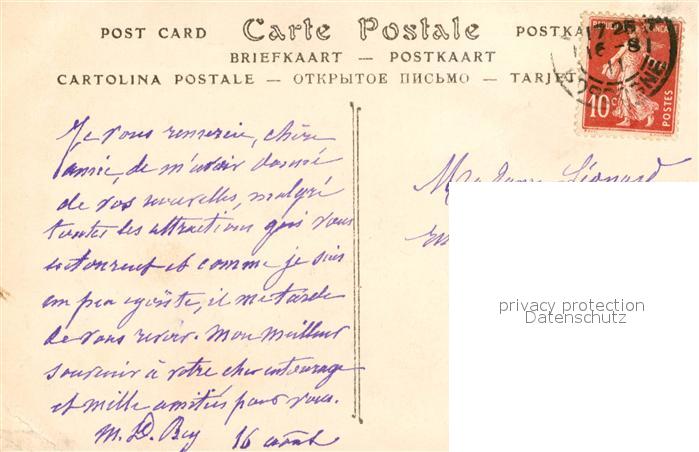 POST CARD Carte Postale POSTKA
BRIEFKAART — POSTKAART
CARTOLINA POSTALE — ОТКРЫТОЕ ПИСЬМО — TARJET
17-25
16-8
10c
POSTES
Je vous remercie, chère
amie, de m'avoir donné
de vos nouvelles, malgré
toutes les attractions qui vous
entourent et comme je suis
un peu égoïste, il me tarde
de vous revoir. Mon meilleur
souvenir à votre cher entourage
et mille amitiés pour vous.
M. D. 16 août
Madame Léonard
privacy protection
Datenschutz